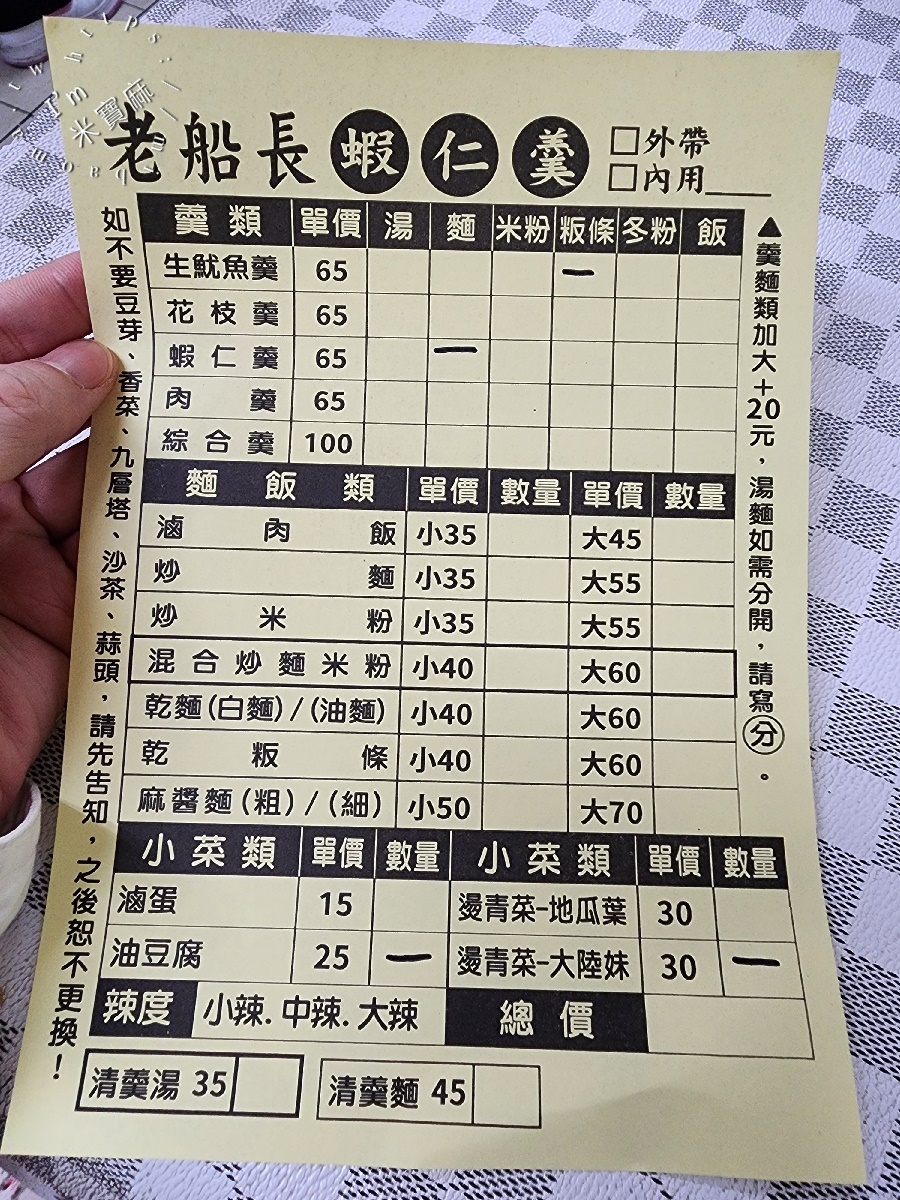 米寶麻
老船長蝦仁羹
□外帶
□內用____
羹類 單價 湯 麵 米粉 粄條 冬粉 飯
生魷魚羹 65 一
花枝羹 65
蝦仁羹 65 一
肉羹 65
綜合羹 100
麵飯類 單價 數量 單價 數量
滷肉飯 小35 大45
炒麵 小35 大55
炒米粉 小35 大55
混合炒麵米粉 小40 大60
乾麵(白麵)/(油麵) 小40 大60
乾粄條 小40 大60
麻醬麵(粗)/(細) 小50 大70
小菜類 單價 數量 小菜類 單價 數量
滷蛋 15 燙青菜-地瓜葉 30
油豆腐 25 一 燙青菜-大陸妹 30 一
辣度 小辣.中辣.大辣 總價
清羹湯 35 清羹麵 45
▲羹麵類加大+20元，湯麵如需分開，請寫分。
如不要豆芽、香菜、九層塔、沙茶、蒜頭，請先告知，之後恕不更換！